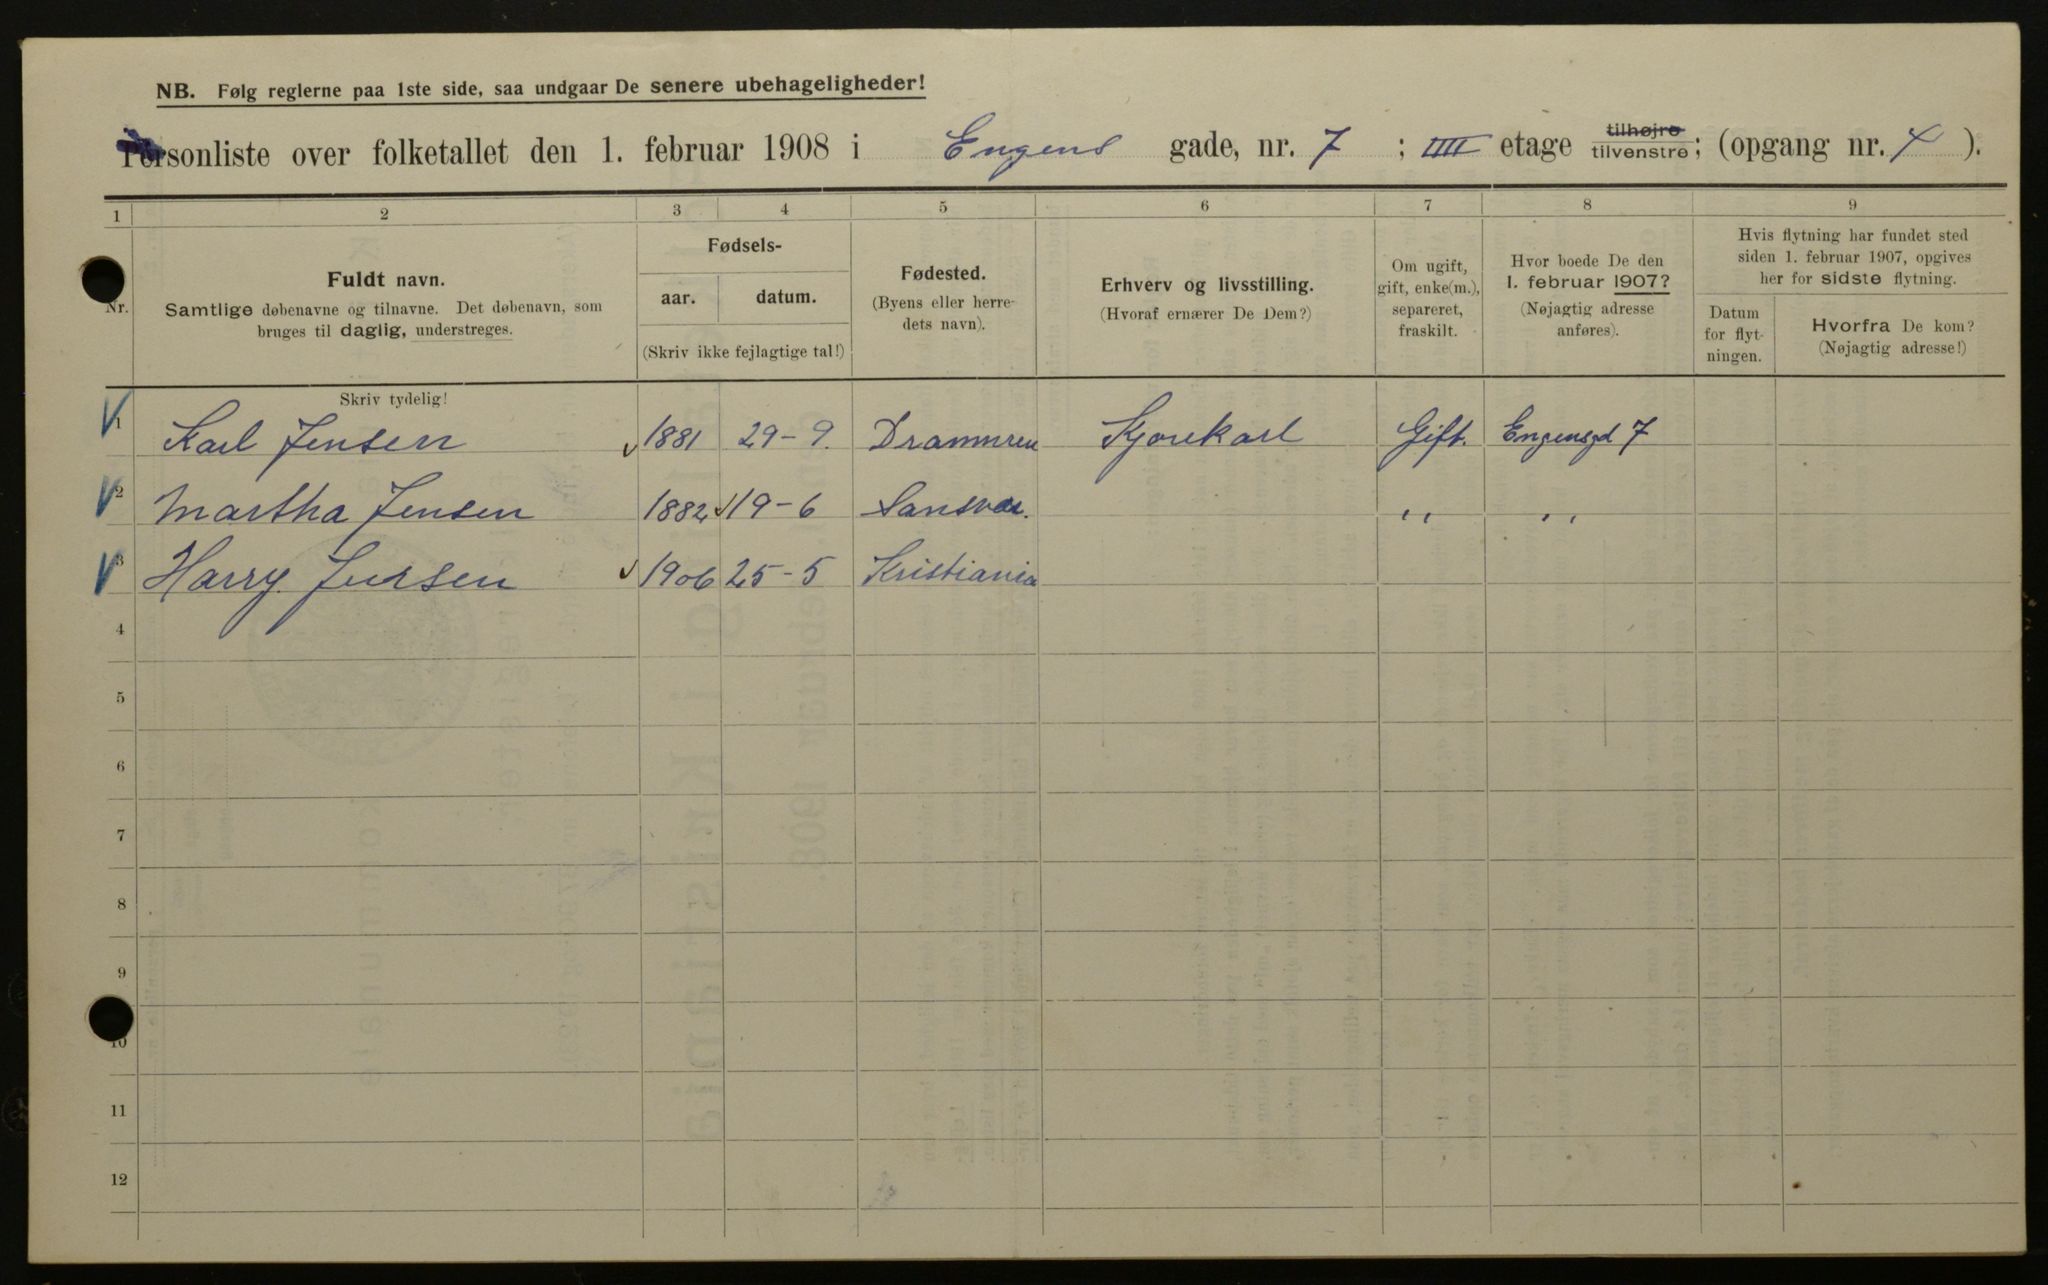 NB. Følg reglerne paa 1ste side, saa undgaar De senere ubehageligheder!
Personliste over folketallet den 1. februar 1908 i Engens gade, nr. 7 ; IIII etage tilhøjre tilvenstre; (opgang nr. 4 ).
1 2 3 4 5 6 7 8 9
Nr.
Fuldt navn.
Samtlige døbenavne og tilnavne. Det døbenavn, som
bruges til daglig, understreges.
Fødsels-
aar. datum.
(Skriv ikke fejlagtige tal!)
Fødested.
(Byens eller herre-
dets navn).
Erhverv og livsstilling.
(Hvoraf ernærer De Dem?)
Om ugift,
gift, enke(m.),
separeret,
fraskilt.
Hvor boede De den
1. februar 1907?
(Nøjagtig adresse
anføres).
Hvis flytning har fundet sted
siden 1. februar 1907, opgives
her for sidste flytning.
Datum
for flyt-
ningen.
Hvorfra De kom?
(Nøjagtig adresse!)
Skriv tydelig!
1 Karl Jensen 1881 29-9. Drammen Kjørekarl Gift. Engensgd 7
2 Martha Jensen 1882 19-6 Sansvær. " "
3 Harry Jensen 1906 25-5 Kristiania
4
5
6
7
8
9
10
11
12